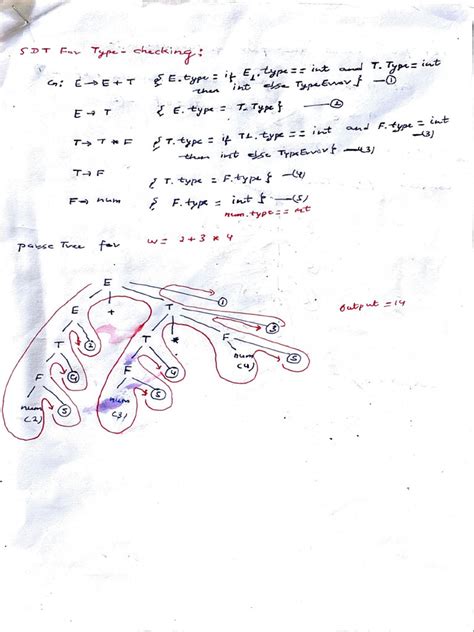 SDT For Type-checking:
G: E → E + T { E.type = if E1.type == int and T.Type = int
then int else TypeError } —①
E → T { E.type = T.Type } —②
T → T * F { T.type = if T1.type == int and F.type = int
then int else TypeError } —(3)
T → F { T.type = F.type } —(4)
F → num { F.type = int } —(5)
num.type == int
parse Tree for w = 2+3*4
E
E + T ①
Output = 14
T ② T * F ③
F ④ F ④ num (4) ⑤
num (2) ⑤ num (3) ⑤